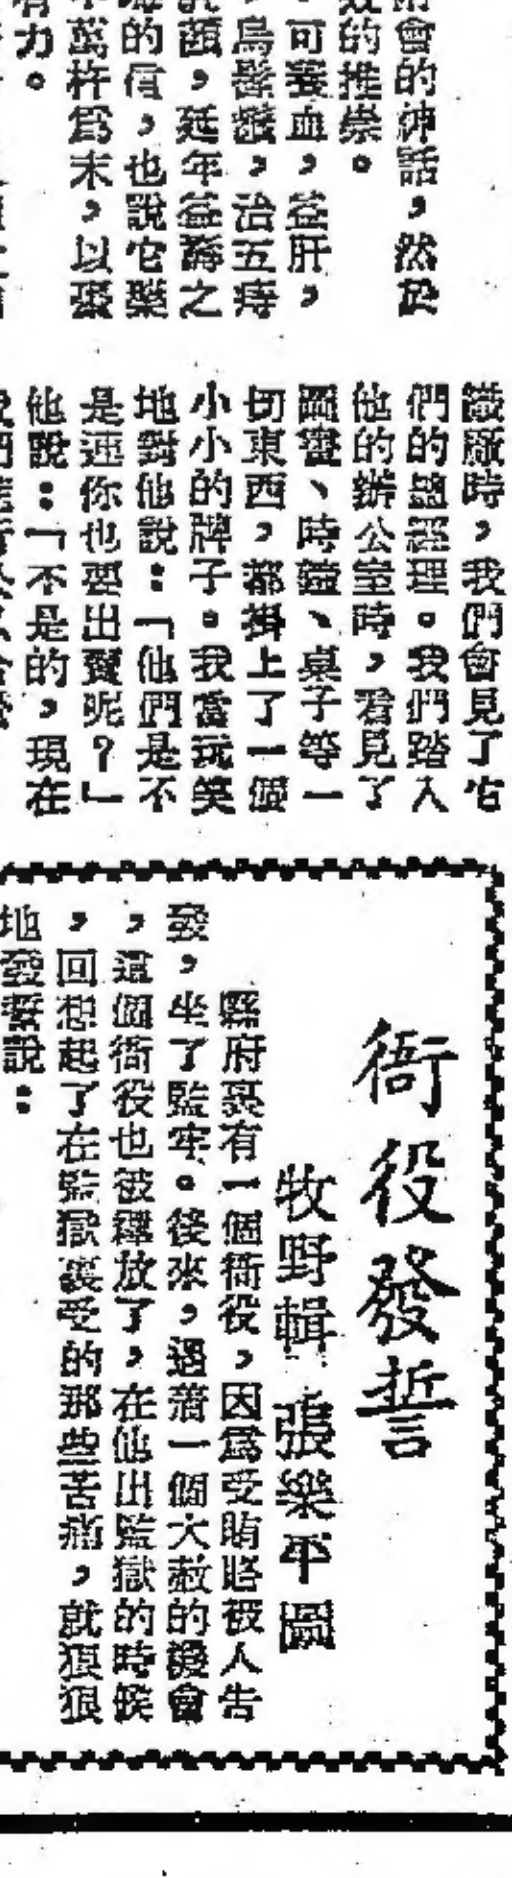 會的神話，然於
的推崇。
可養血，益肝，
烏髭髮，治五痔
，延年益壽之
的信，也說它藥
萬杵爲末，以棗
有力。
織廠時，我們會見了它
們的總經理。我們踏入
他的辦公室時，看見了
圖畫、時鐘、桌子等一
切東西，都掛上了一個
小小的牌子。我當玩笑
地對他說：「他們是不
是連你也要出賣呢？」
他說：「不是的，現在
衙役發誓
牧野輯 張樂平圖
縣府裏有一個衙役，因爲受賄賂被人告
發，坐了監牢。後來，遇着一個大赦的機會
，這個衙役也被釋放了，在他出監獄的時候
，回想起了在監獄裏受的那些苦痛，就狠狠
地發誓說：